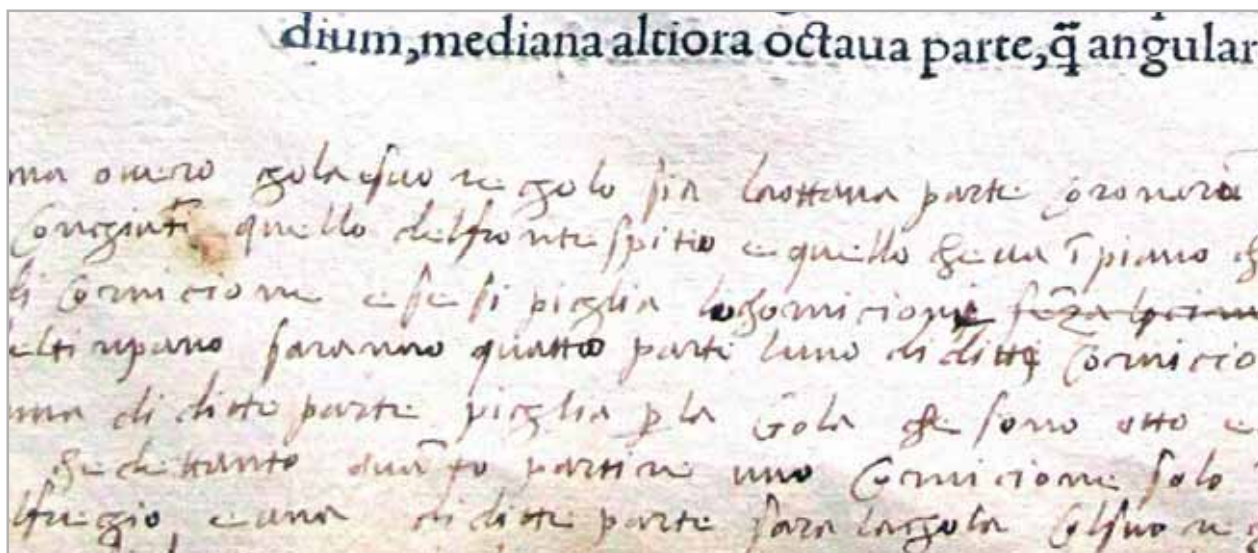 dium,mediana altiora octaua parte,q̃ angular
ma ouero gola esuo regolo sia laottaua parte
Congiūti quello delfrontespitio e quello che ua ī piano
di Cornicione e se si piglia senza la cima
eltimpano saranno quatto parte luno di ditti Cornicio
una di ditte parte piglia p̱ la Gola che sono otto e
che e tanto quāto partire uno Cornicione solo
lfregio e una di ditte parte sara lagola Colsuo re